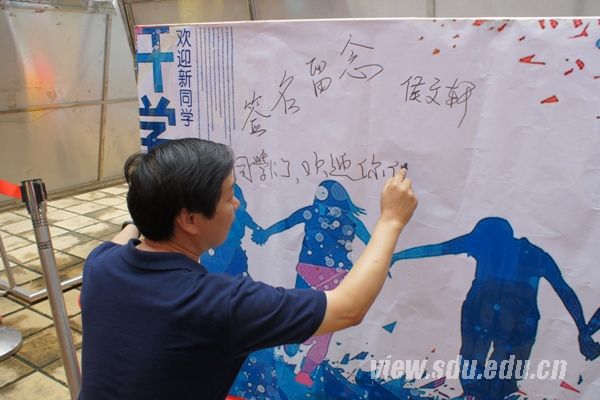 欢迎新同学
签名留念
侯文轩
同學们,欢迎你们
view.sdu.edu.cn